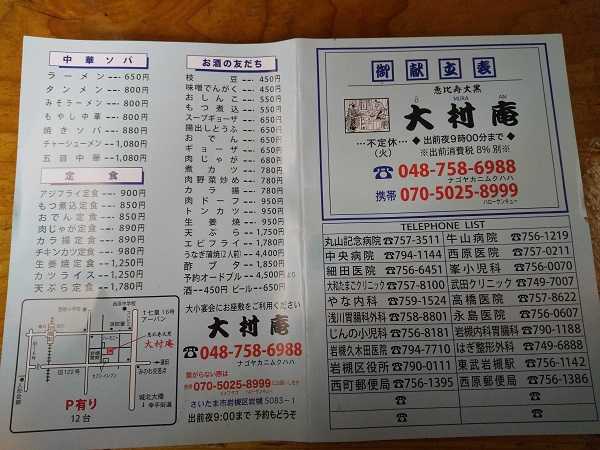 中華ソバ
ラーメン---650円
タンメン---800円
みそラーメン---800円
もやし中華---800円
焼きソバ---880円
チャーシューメン--1,080円
五目中華--1,080円
定食
アジフライ定食---900円
もつ煮込定食---850円
おでん定食---850円
肉じゃが定食---890円
カラ揚定食---1,080円
チキンカツ定食---980円
生姜焼定食---1,250円
カツライス---1,250円
天ぷら定食---1,780円
お酒の友だち
枝豆---450円
味噌でんがく---450円
おしんこ---550円
もつ煮込---550円
スープギョーザ---650円
揚出しとうふ---650円
おでん---650円
ギョーザ---650円
肉じゃが---690円
煮カツ---1,080円
肉野菜炒め---780円
カラ揚---780円
肉ドーフ---950円
トンカツ---950円
生姜焼---950円
天ぷら---1,750円
エビフライ---1,480円
うなぎ蒲焼(2人前)---4,400円
酢ブタ---1,850円
予約オードブル---4,500円より
酒---450円 ビール---650円
大小宴会にお座敷をご利用ください
大村庵
☎048-758-6988
ナゴヤカニムクハハ
繋がらない際は
携帯070-5025-8999
さいたま市岩槻区岩槻 5083-1
出前夜9:00まで 予約もどうぞ
西原中学校
大村庵
国122号
セブンイレブン
P有り
12台
城北大橋
↓幸手街道
御献立表
恵比寿大黒
大村庵
MURA
AN
…不定休…
(火)
◆出前夜9時00分まで◆
※出前消費税8%別※
☎048-758-6988
ナゴヤカニムクハハ
携帯 070-5025-8999
ハローサンキュー
TELEPHONE LIST
丸山記念病院 ☎757-3511 牛山病院 ☎756-1219
中央病院 ☎794-1144 西原医院 ☎757-0211
細田医院 ☎756-6451 峯小児科 ☎756-0070
大和たまごクリニック ☎757-8100 武田クリニック ☎749-7007
やな内科 ☎759-1524 高橋医院 ☎757-8622
浅川胃腸科外科 ☎758-8801 永島医院 ☎756-0607
じんの小児科 ☎756-8181 岩槻内科胃腸科 ☎790-1188
岩槻久木田医院 ☎794-7710 はぎ整形外科 ☎749-6888
岩槻区役所 ☎790-0111 東武岩槻駅 ☎756-1142
西町郵便局 ☎756-1395 西原郵便局 ☎756-1386
☎ ☎
☎ ☎